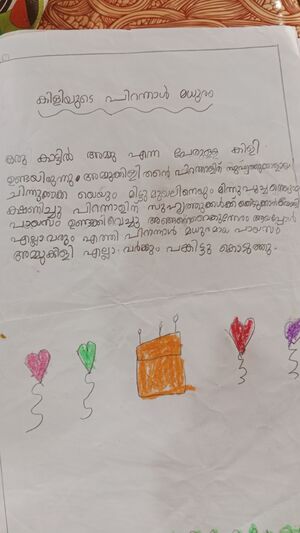 കിളിയുടെ പിറന്നാൾ മധുരം
ഒരു കാട്ടിൽ അമ്മു എന്ന പേരുള്ള കിളി
ഉണ്ടായിരുന്നു. അമ്മുക്കിളി തൻ്റെ പിറന്നാളിന്
ചിന്നുക്കാക്ക യെയും മിട്ടു മുയലിനെയും മിന്നു പൂച്ച
ക്ഷണിച്ചു പിറന്നാളിന് സുഹൃത്തുക്കൾക്ക്
പായസം ഉണ്ടാക്കി വെച്ചു അങ്ങനെ
എല്ലാവരും എത്തി പിറന്നാൾ മധുരമായ പായസം
അമ്മുക്കിളി എല്ലാ വർക്കും പങ്കിട്ടു കൊടുത്തു.